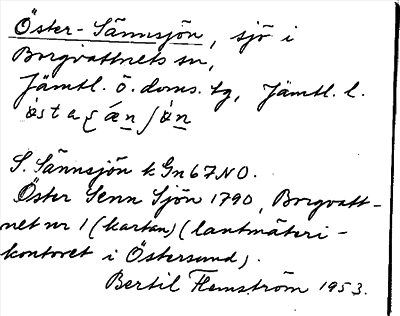 Öster-Sännsjön, sjö i
Borgvattnets sn,
Jämtl. ö. doms. tg, Jämtl. l.
S. Sännsjön k Gn67NO.
Öster Senn Sjön 1790, Borgvatt-
net nr 1 (kartan) (lantmäteri-
kontoret i Östersund).
Bertil Flemström 1953.